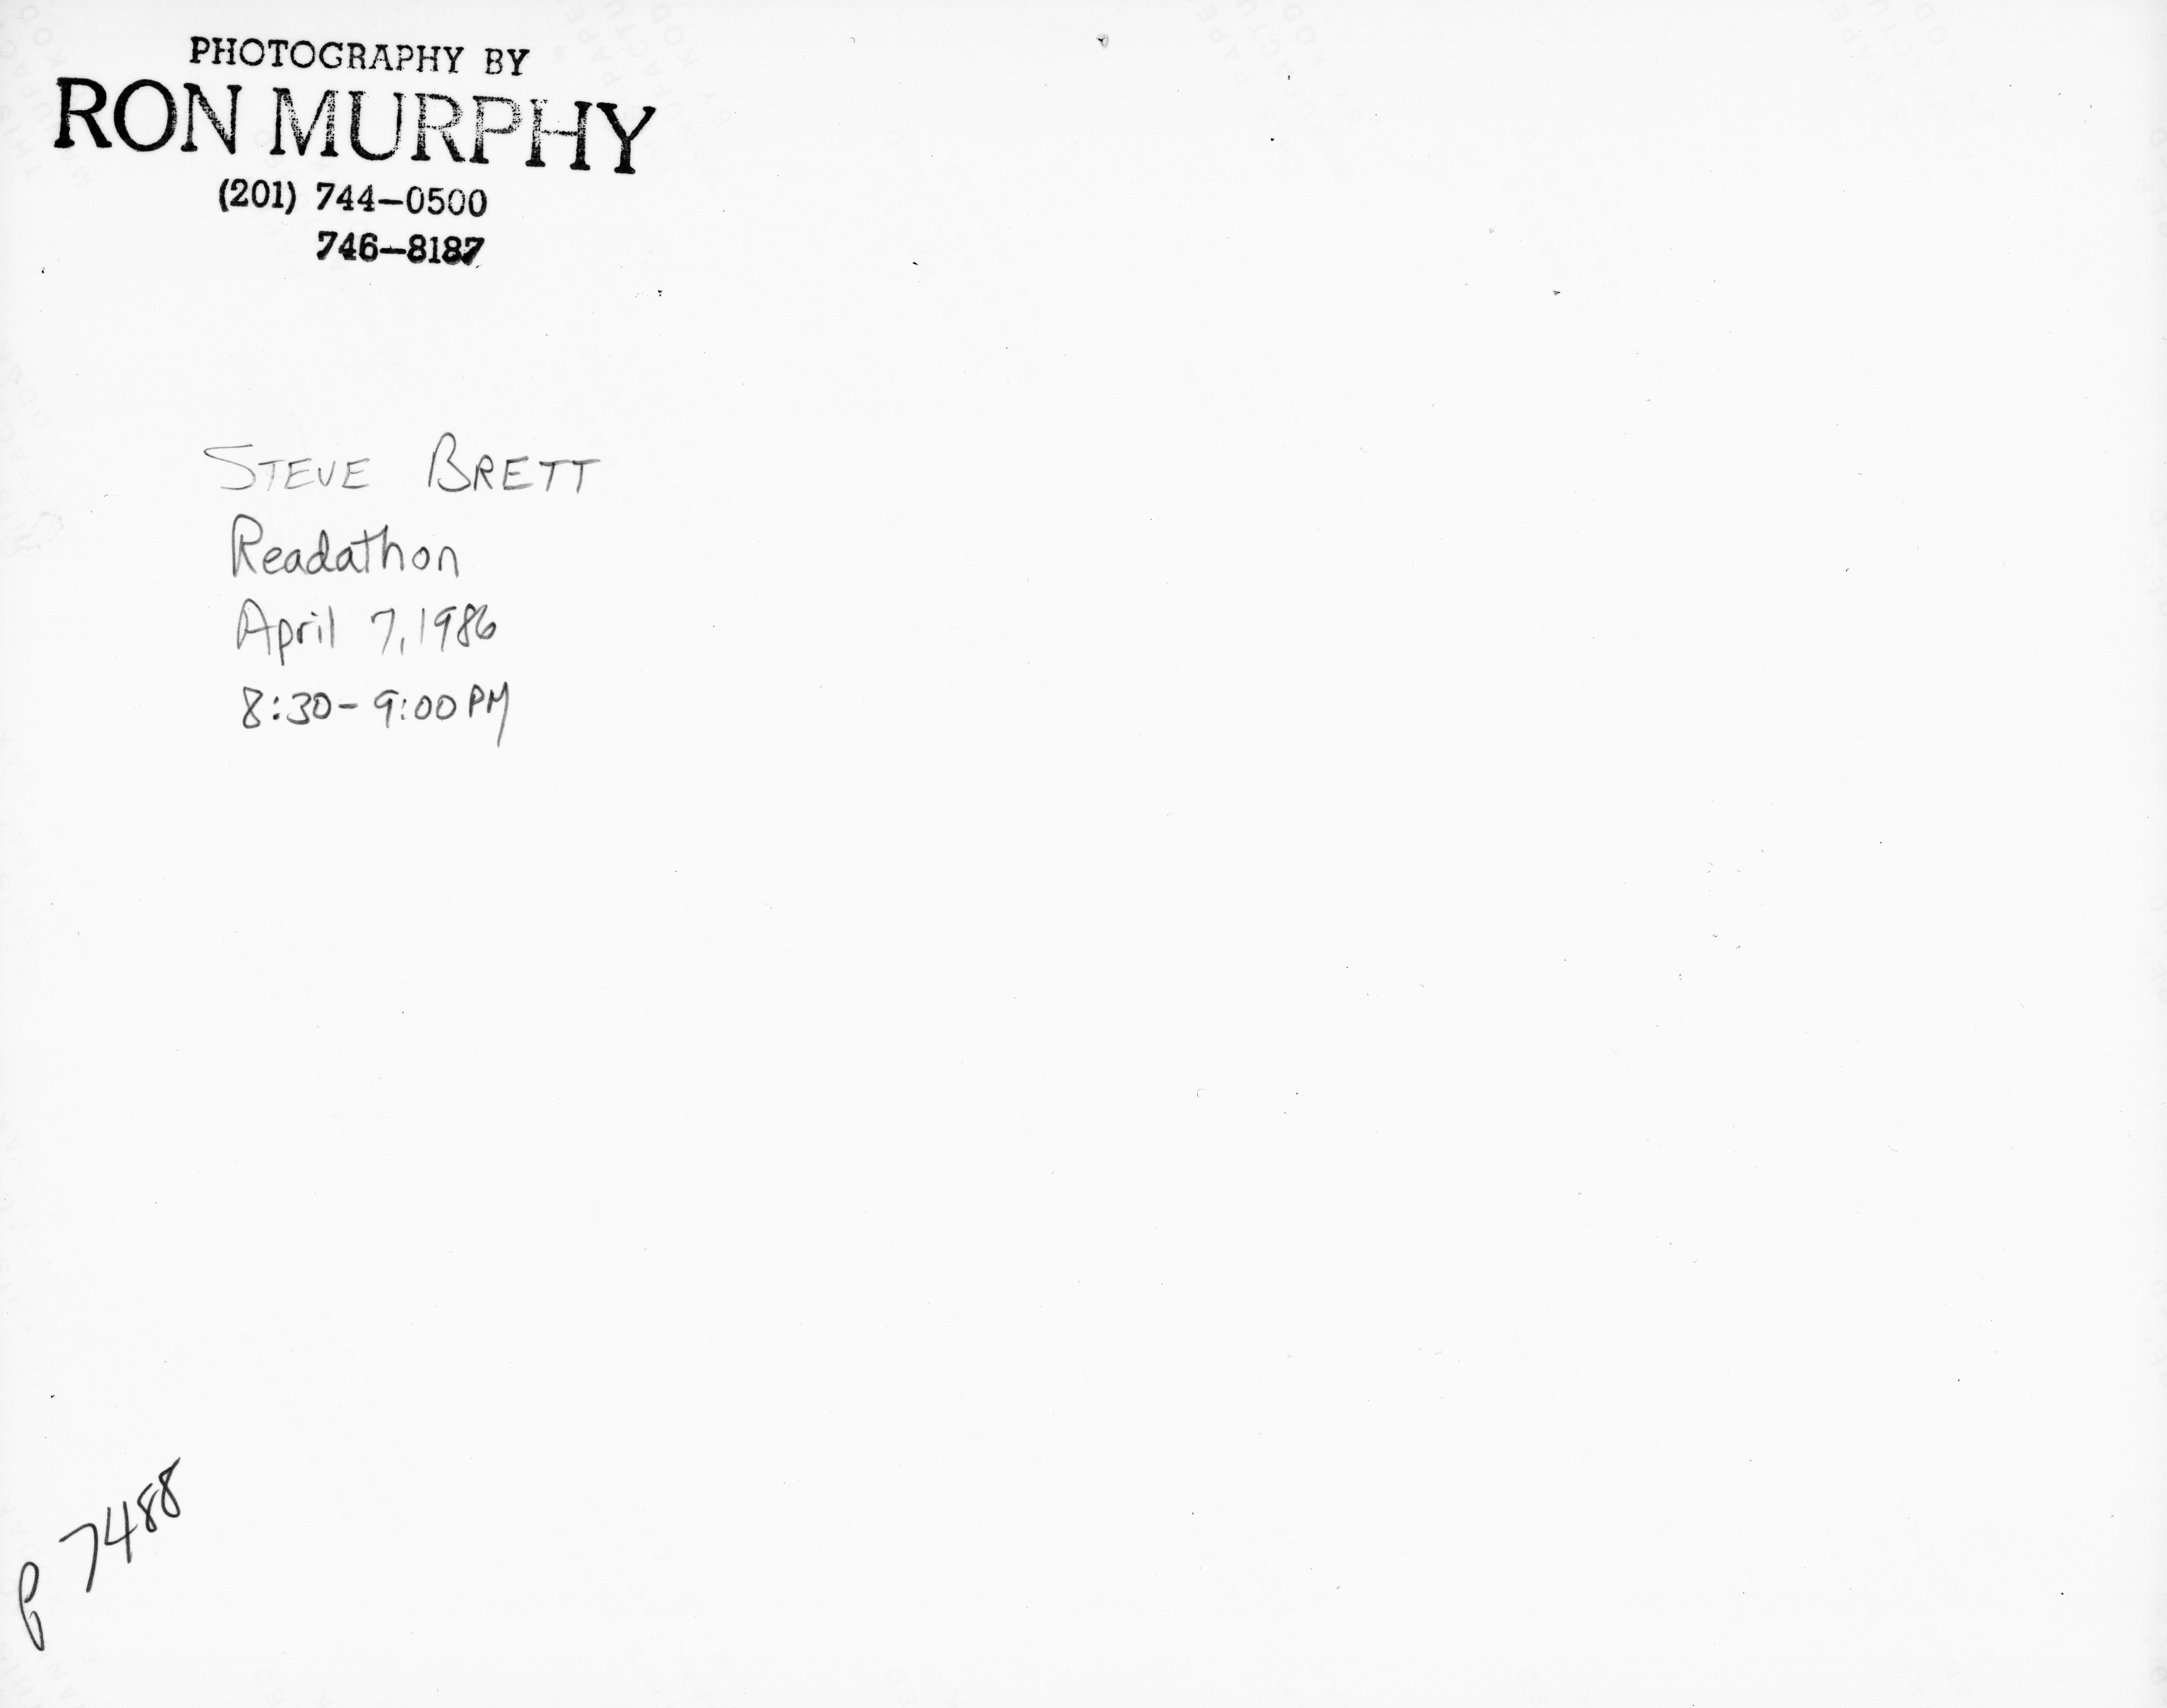 PHOTOGRAPHY BY
RON MURPHY
(201) 744-0500
746-8187
STEVE BRETT
Readathon
April 7, 1986
8:30-9:00 PM
7488